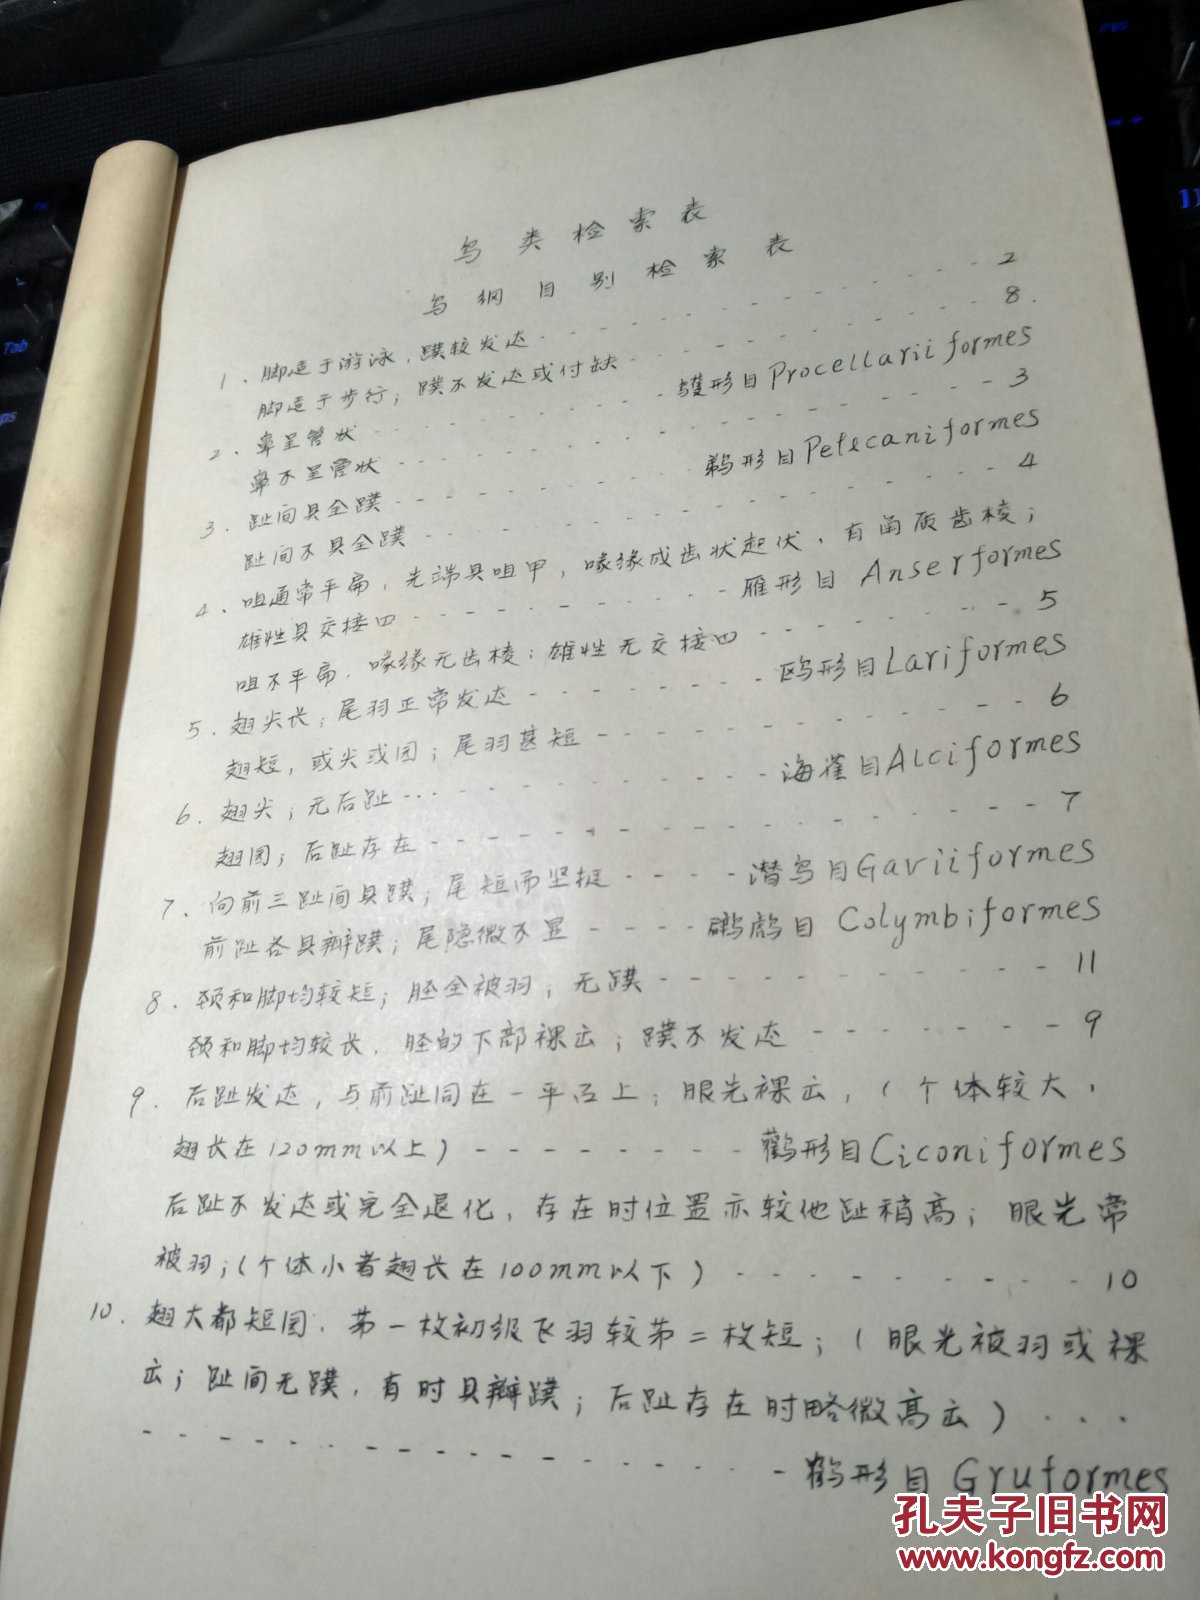 鸟类检索表
鸟纲目别检索表
1. 脚适于游泳，蹼较发达 - - - - - - - - - - - - 2
脚适于步行；蹼不发达或付缺 - - - - - - - - - - 8.
2. 鼻呈管状 - - - - - - - - - - 鹱形目 Procellarii formes
鼻不呈管状 - - - - - - - - - - - - - - 3
3. 趾间具全蹼 - - - - - - - - - 鹈形目 Pelecaniformes
趾间不具全蹼 - - - - - - - - - - - - - 4
4. 咀通常平扁，先端具咀甲，喙缘成齿状起伏，有角质齿棱；
雄性具交接口 - - - - - - - - - - 雁形目 Anserformes
咀不平扁，喙缘无齿棱；雄性无交接口 - - - - - - - - 5
5. 翅尖长；尾羽正常发达 - - - - - - - - 鸥形目 Lariformes
翅短，或尖或园；尾羽甚短 - - - - - - - - - - - 6
6. 翅尖；无后趾 - - - - - - - - - - 海雀目 Alciformes
翅园；后趾存在 - - - - - - - - - - - - - - 7
7. 向前三趾间具蹼；尾短而坚挺 - - - - 潜鸟目 Gaviiformes
前趾各具瓣蹼；尾隐微不显 - - - - 鸊鷉目 Colymbiformes
8. 颈和脚均较短；胫全被羽；无蹼 - - - - - - - - - - - 11
颈和脚均较长，胫的下部裸出；蹼不发达 - - - - - - - 9
9. 后趾发达，与前趾同在一平面上；眼先裸出，（个体较大，
翅长在120mm以上） - - - - - - - - 鹳形目 Ciconiformes
后趾不发达或完全退化，存在时位置亦较他趾稍高；眼先常
被羽；（个体小者翅长在100mm以下） - - - - - - - - - 10
10. 翅大都短园，第一枚初级飞羽较第二枚短；（眼先被羽或裸
出；趾间无蹼，有时具瓣蹼；后趾存在时略微高出） . . .
- - - - - - - - - - - - - - - - - 鹤形目 Gruformes
孔夫子旧书网
www.kongfz.com